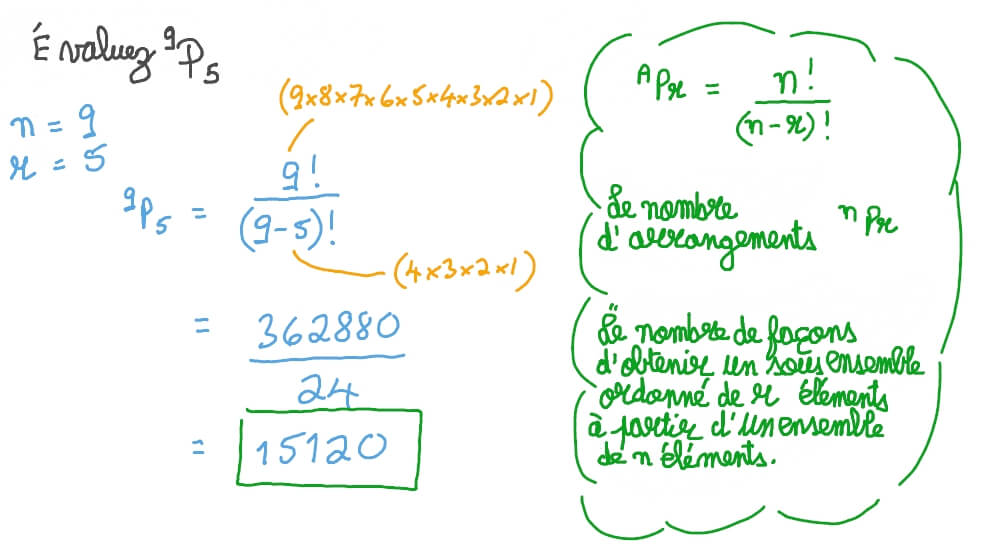 Évaluez ⁹P₅
n = 9
r = 5
(9×8×7×6×5×4×3×2×1)
⁹P₅ = 9! / (9-5)!
(4×3×2×1)
= 362880 / 24
= 15120
ᴬPr = n! / (n-r)!
Le nombre
d'arrangements ⁿPr
Le nombre de façons
d'obtenir un sous ensemble
ordonné de r éléments
à partir d'un ensemble
de n éléments.